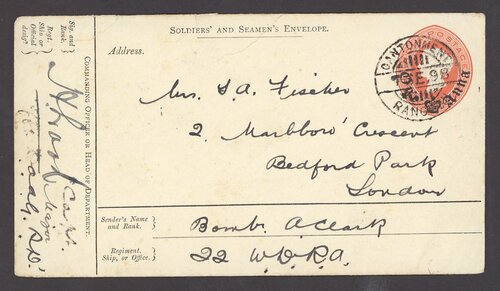 SOLDIERS' AND SEAMEN'S ENVELOPE.
POSTAGE
Anna
CANTONMENT
FE 98
RANG
Address.
Mrs. S. A. Fischer
2. Marlboro' Crescent
Bedford Park
London
Sender's Name and Rank.
Bomb. A Clark
Regiment, Ship, or Office.
22 W.D.R.A.
Sig. and Rank.
Regt. Ship or Official desigⁿ
COMMANDING OFFICER OR HEAD OF DEPARTMENT.
Capt.